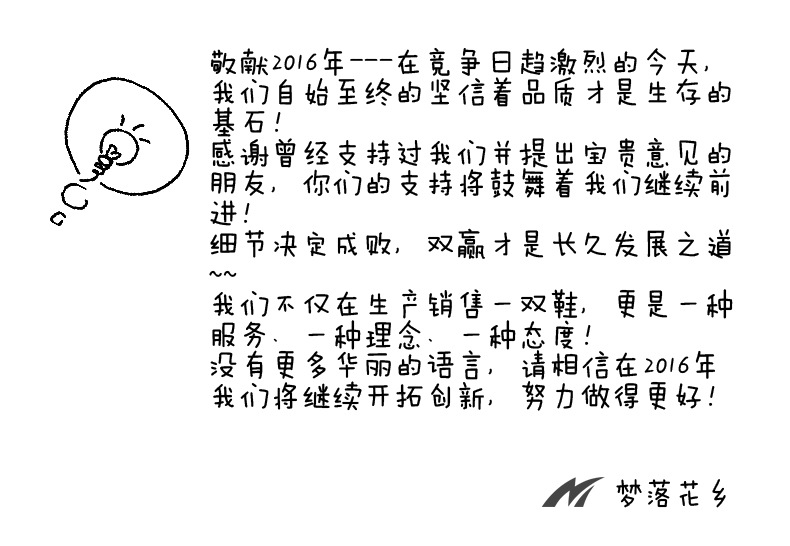 敬献2016年---在竞争日趋激烈的今天,
我们自始至终的坚信着品质才是生存的
基石!
感谢曾经支持过我们并提出宝贵意见的
朋友, 你们的支持将鼓舞着我们继续前
进!
细节决定成败, 双赢才是长久发展之道
~~
我们不仅在生产销售一双鞋, 更是一种
服务、一种理念、一种态度!
没有更多华丽的语言, 请相信在2016年
我们将继续开拓创新, 努力做得更好!
梦落花乡